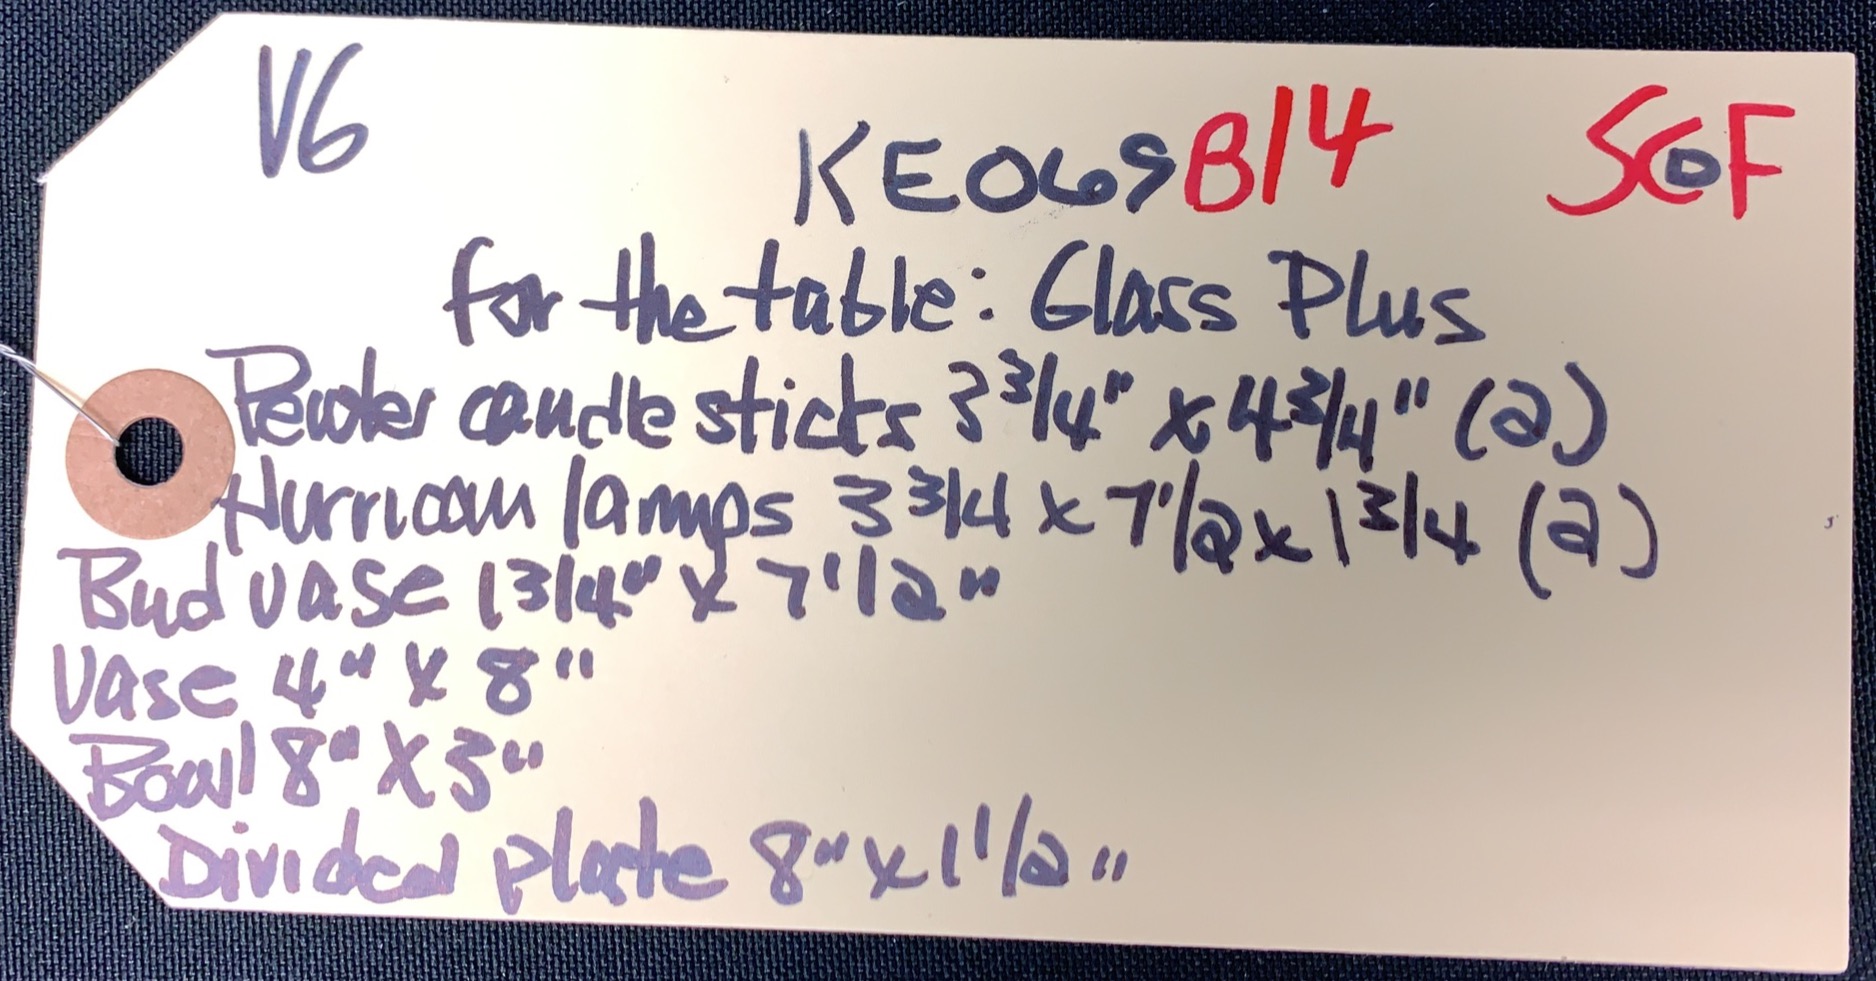 V6
KE069 B14 SCF
for the table: Glass Plus
Pewter candle sticks 3 3/4" x 4 3/4" (2)
Hurrican lamps 3 3/4 x 7 1/2 x 1 3/4 (2)
Bud vase 1 3/4" x 7 1/2"
Vase 4" x 8"
Bowl 8" X 3"
Divided plate 8" x 1 1/2"